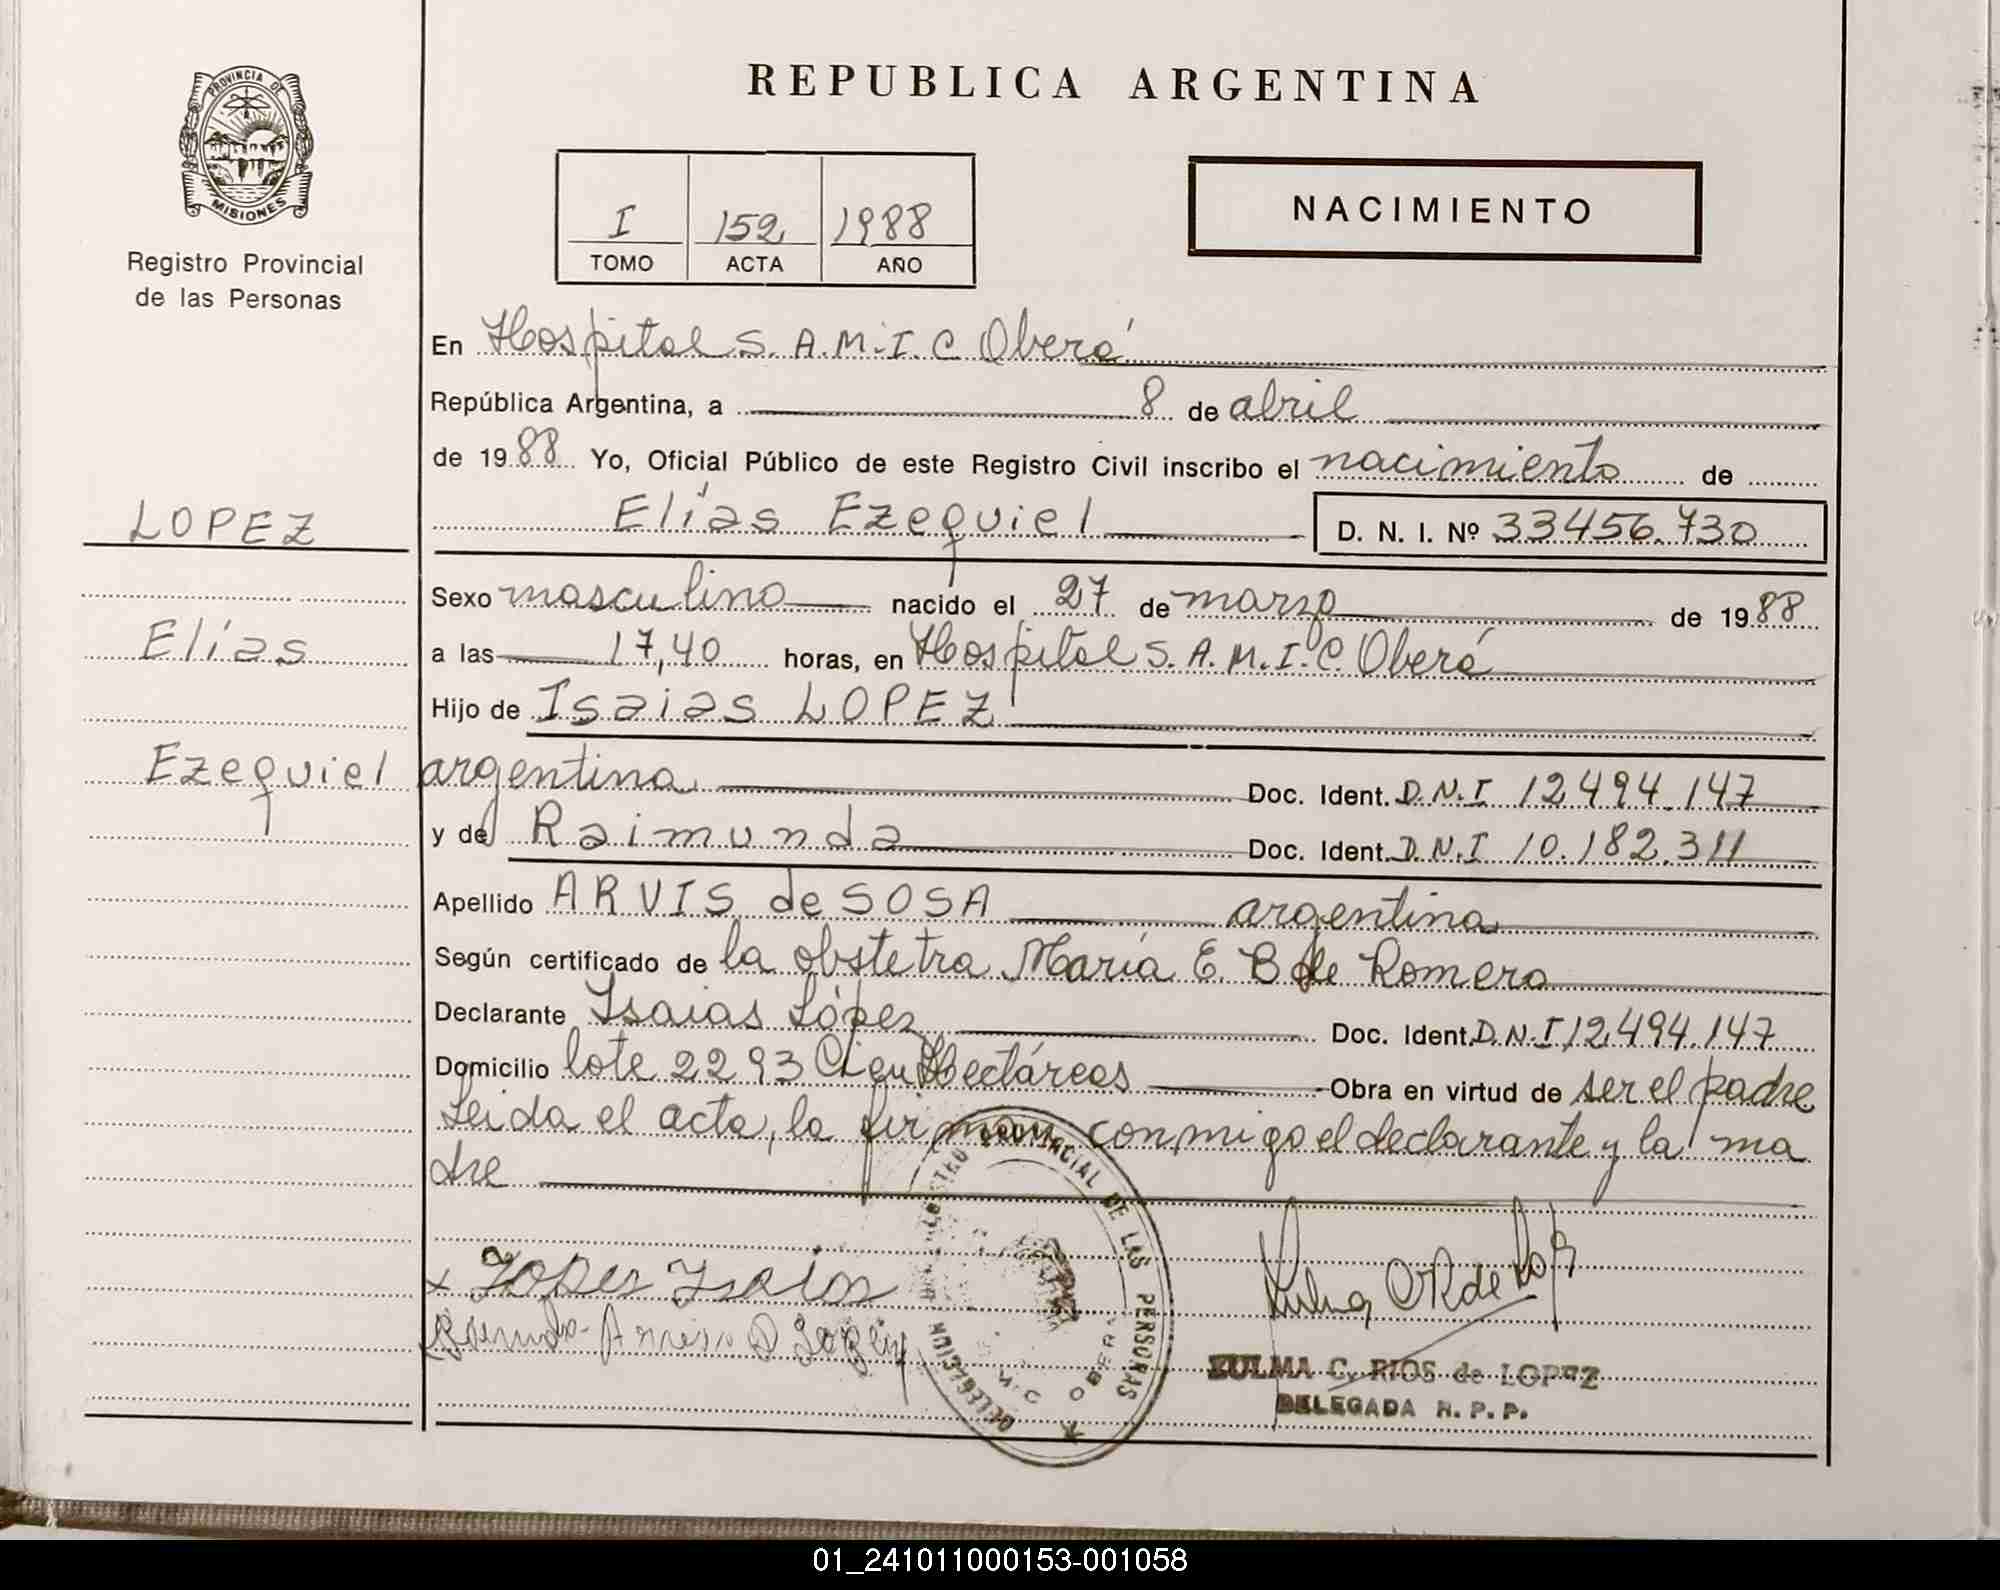 PROVINCIA DE
MISIONES
Registro Provincial
de las Personas
LOPEZ
Elías
Ezequiel
REPUBLICA ARGENTINA
I 152 1988
TOMO ACTA AÑO
NACIMIENTO
En Hospital S. A.M.I.C Oberá
República Argentina, a 8 de abril
de 1988 Yo, Oficial Público de este Registro Civil inscribo el nacimiento de
Elías Ezequiel D. N. I. Nº 33456.730
Sexo masculino nacido el 27 de marzo de 1988
a las 17,40 horas, en Hospital S. A. M. I. C. Oberá
Hijo de Isaias LOPEZ
argentina Doc. Ident. D.N.I 12.494.147
y de Raimunda Doc. Ident. D.N.I 10.182.311
Apellido ARVIS de SOSA argentina
Según certificado de la obstetra María E. B de Romero
Declarante Isaias López Doc. Ident. D.N.I 12.494.147
Domicilio lote 2293 Cien Hectáreas Obra en virtud de ser el padre
Leida el acta, la firman conmigo el declarante y la ma
dre
x Lopes Isaias
REGISTRO PROVINCIAL DE LAS PERSONAS
OBERA
ZULMA C. RIOS de LOPEZ
DELEGADA R. P. P.
01_241011000153-001058